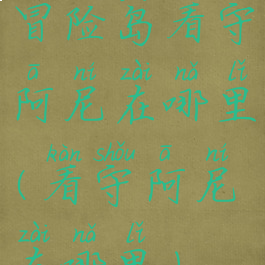 冒险岛看守
ā ní zài nǎ lǐ
阿尼在哪里
kàn shǒu ā ní
(看守阿尼
zài nǎ lǐ
在哪里)